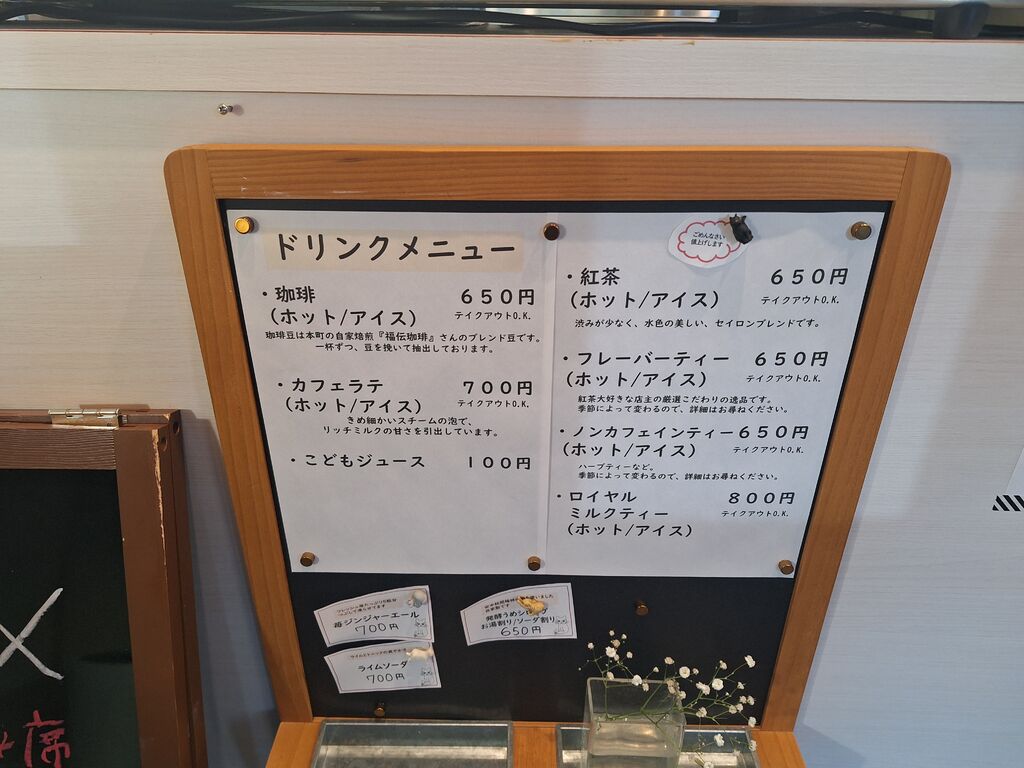 ドリンクメニュー
・珈琲 650円
(ホット/アイス) テイクアウトO.K.
珈琲豆は本町の自家焙煎『福伝珈琲』さんのブレンド豆です。
一杯ずつ、豆を挽いて抽出しております。
・カフェラテ 700円
(ホット/アイス) テイクアウトO.K.
きめ細かいスチームの泡で、
リッチミルクの甘さを引出しています。
・こどもジュース 100円
ごめんなさい
値上げします
・紅茶 650円
(ホット/アイス) テイクアウトO.K.
渋みが少なく、水色の美しい、セイロンブレンドです。
・フレーバーティー 650円
(ホット/アイス) テイクアウトO.K.
紅茶大好きな店主の厳選こだわりの逸品です。
季節によって変わるので、詳細はお尋ねください。
・ノンカフェインティー 650円
(ホット/アイス) テイクアウトO.K.
ハーブティーなど。
季節によって変わるので、詳細はお尋ねください。
・ロイヤル 800円
ミルクティー テイクアウトO.K.
(ホット/アイス)
苺ジンジャーエール
700円
ライムソーダ
700円
発酵うめシロップ
お湯割り/ソーダ割り
650円
席